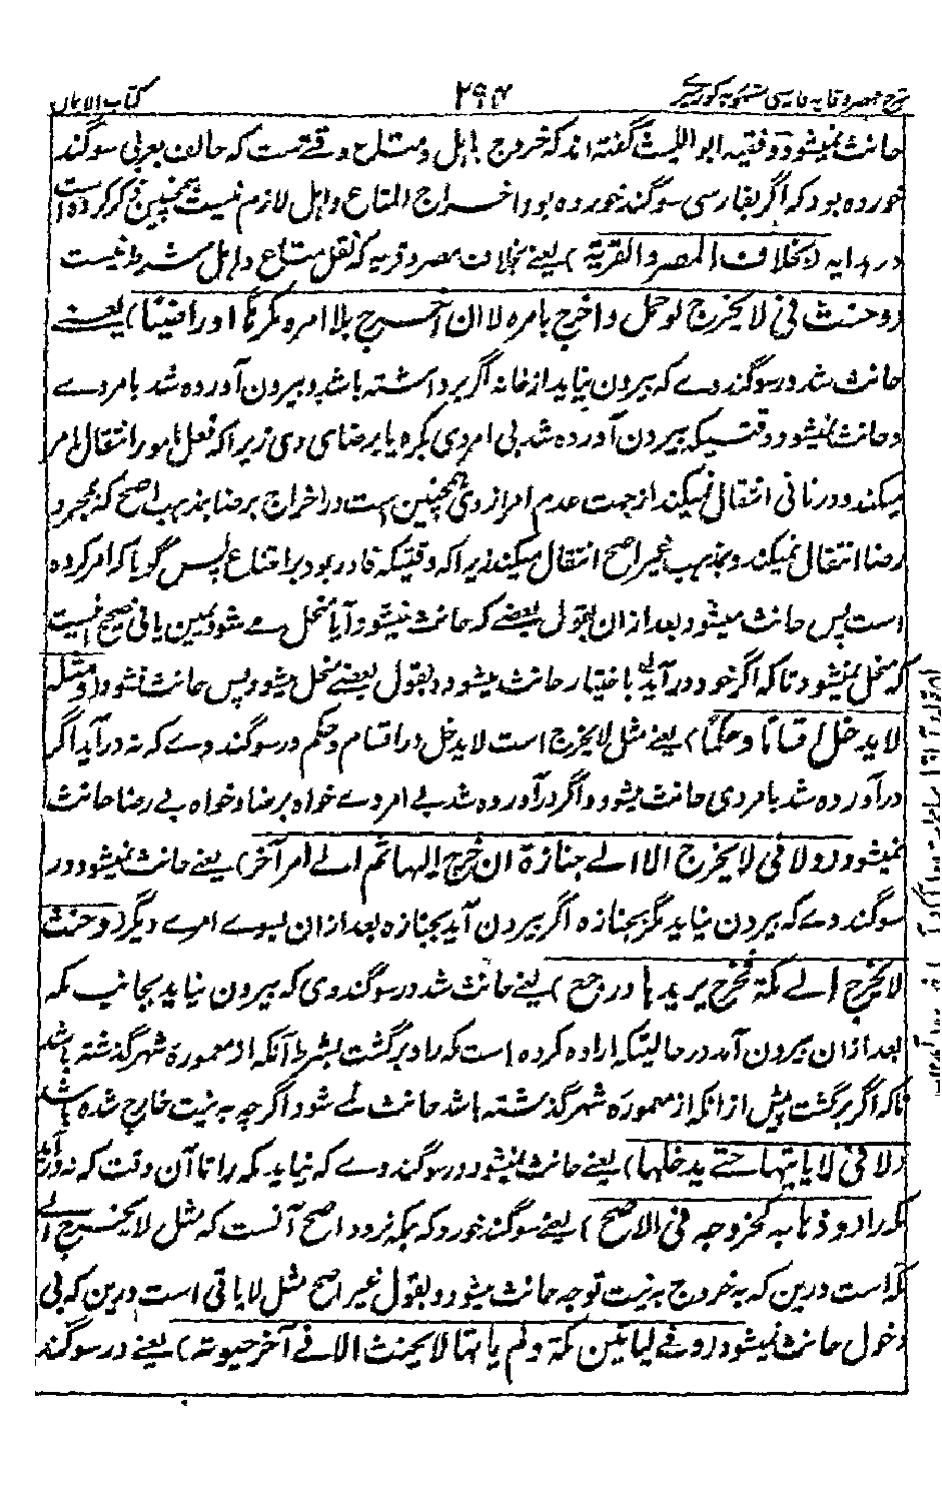 شرح مختصر وقایه فارسی ۲۹۴ کتاب الایمان
حانث نمیشود و فقیه ابو اللیث گفته اند که خروج باهل و متاع وقتی ست که حالف بعربی سوگند
خورده بود که اگر بفارسی سوگند خورده بود اخراج المتاع و اهل لازم نیست همچنین ذکر کرده است
در هدایه (بخلاف المصر والقریة) یعنے بخلاف مصر و قریه که نقل متاع و اهل شرط نیست
(وحنث فی لا یخرج لو حمل واخرج بامره لا ان اخرج بلا امره مکرها او راضیا) یعنے
حانث شد در سوگند وے که بیرون نیاید از خانه اگر برداشته باشد و بیرون آورده شد بامر وے
و حانث نمیشود وقتیکه بیرون آورده شد بی امر وی بکره یا برضای وی زیرا که فعل مامور انتقال بامر
میکند و در ثانی انتقال نمیکند از جهت عدم امر از وی همچنین ست در اخراج برضا بمذهب اصح که بمجرد
رضا انتقال نمیکند و بمذهب غیر اصح انتقال میکند زیرا که وقتیکه قادر بود بر امتناع پس گویا که امر کرده
است پس حانث میشود بعد ازان بقول بعضے که حانث نمیشود آیا منحل مے شود یمین یا نی صحیح اینست
که منحل نمیشود تا که اگر خود در آید باختیار حانث میشود و بقول بعضے منحل میشود پس حانث نشود (ومثله
لا یدخل اقساما وحکما) یعنے مثل لا یخرج است لا یدخل در اقسام و حکم در سوگند وے که نه درآید اگر
درآورده شد بامر وی حانث میشود و اگر درآورده شد بے امر وے خواه برضا و خواه بے رضا حانث
نمیشود (ولا فی لا یخرج الا الے جنازة ان خرج الیها ثم الے امر آخر) یعنے حانث نمیشود در
سوگند وے که بیرون نیاید مگر بجنازه اگر بیرون آید بجنازه بعد ازان بسوے امرے دیگر (وحنث
لا یخرج الے مکة فخرج یریدها ورجع) یعنے حانث شد در سوگند وی که بیرون نیاید بجانب مکه
بعد ازان بیرون آمد در حالیکه اراده کرده است که را و برگشت بشرط آنکه از معموره شهر گذشته باشد
تا که اگر برگشت پیش ازانکه از معموره شهر گذشته باشد حانث نمے شود اگر چه به نیت خارج شده باشد
(ولا فی لا یاتیها حتے یدخلها) یعنے حانث نمیشود در سوگند وے که نیاید مکه را تا آن وقت که نه درآید
مکه را (و ذهابه کخروجه فی الاصح) یعنے سوگند خورد که بمکه نرود اصح آنست که مثل لا یخرج الے
مکه است درین که به خروج به نیت توجه حانث میشود و بقول غیر اصح مثل لا یاتی است درین که بی
دخول حانث نمیشود (وفے لیاتین مکة ولم یاتها لا یحنث الا فے آخر حیوته) یعنے در سوگند